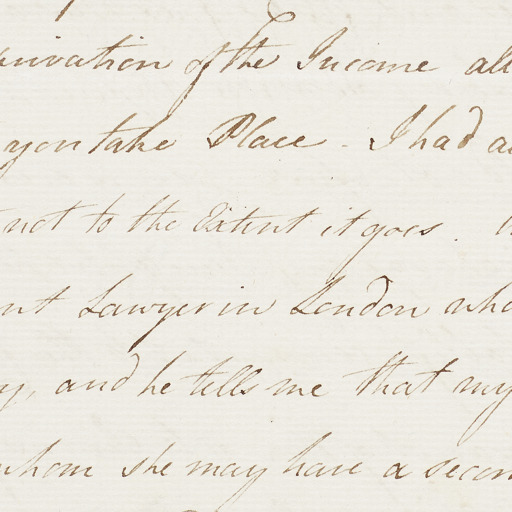 rivation of the Income all
you take Place - I had a
not to the Extent it goes.
nt Lawyer in London who
y, and he tells me that my
whom she may have a secon